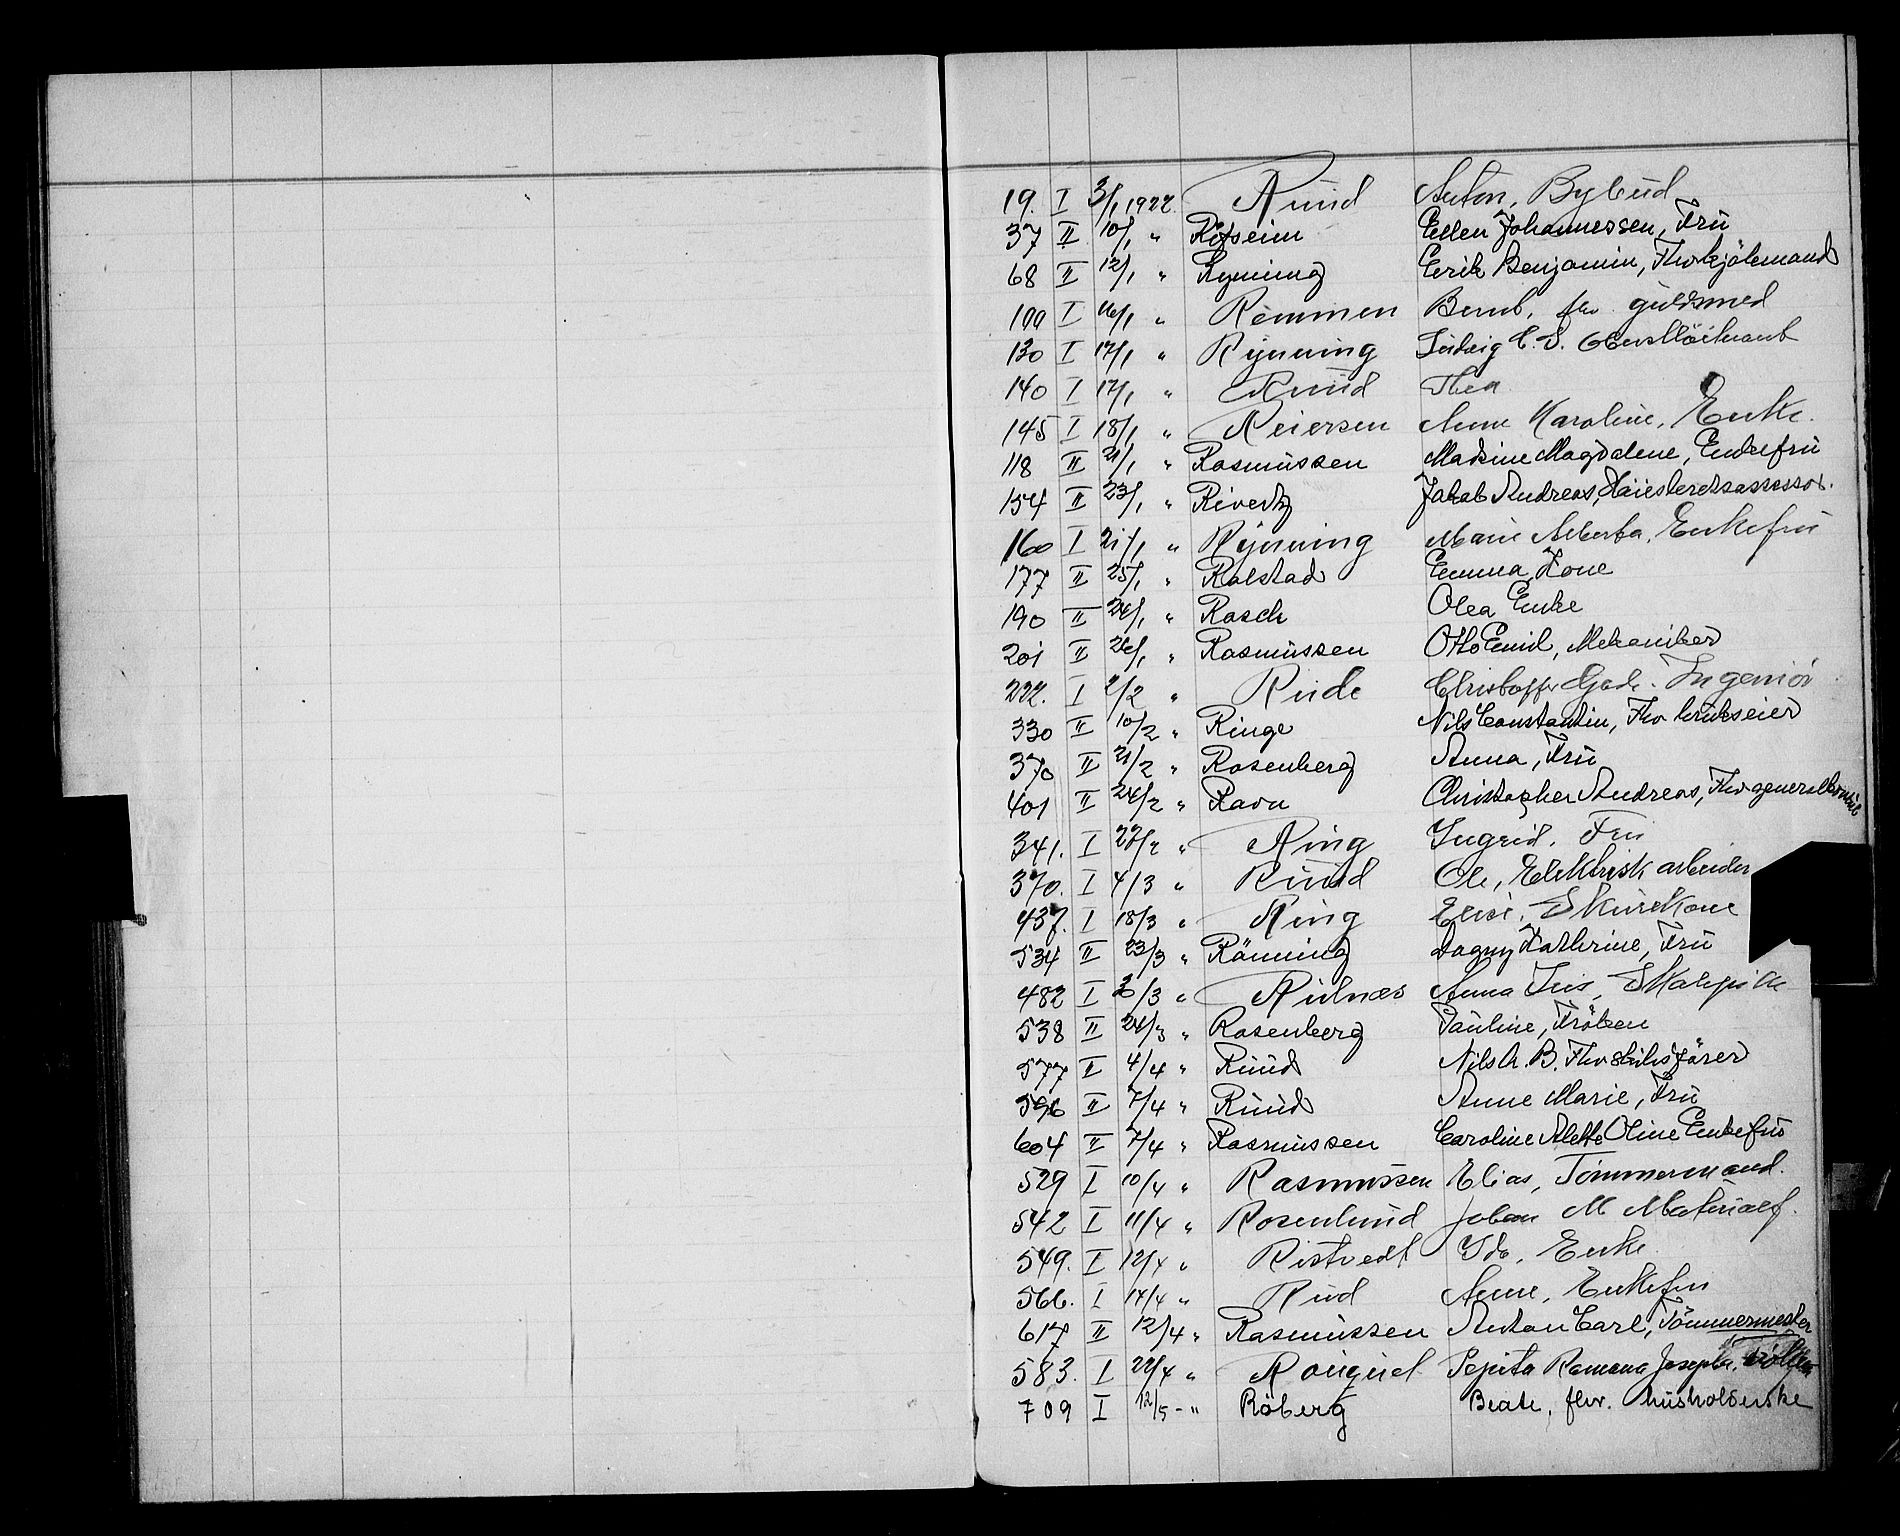 19. I 3/1 1922. Ruud Anton, Bybud
37 II 10/1 " Röfseim Ellen Johannessen, Frü
68 II 12/1 " Rynning Erik Benjamin, Fhv kjölemand
100 I 16/1 " Rømmen Bernh. fhv. guldsmed
130 I 17/1 " Rynning Ludvig C. S. Oberstløitnant
140 I 17/1 " Ruud Thea
145 I 18/1 " Reiersen Anne Karoline, Enke.
118 II 21/1 " Rasmussen Madsine Magdalene, Enkefrü
154 II 23/1 " Rivertz Jakob Andreas, Höiesteretsassessor.
160 I 21/1 " Rynning Marie Alberta, Enkefru
177 II 25/1 " Ralstad Emma, Kone
190 II 24/1 " Rasch Olea Enke
201 II 26/1 " Rasmussen Otto Emil, Mekaniker
222. I 2/2 " Rude Christoffer Gade. Ingeniør
330 II 10/2 " Ringe Nils Constantin, Fhv brükseier
370 II 21/2 " Rosenberg Anna, Frü
401 II 24/2 " Ravn Christopher Andreas, Fhv generalkonsul
341. I 27/2 " Ring Ingrid. Fru
370. I 4/3 " Ruud Ole, Elektrisk arbeider
437. I 18/3 " Ring Elise. Skurekone
534 II 23/3 " Rönning Dagny Kathrine, Frü
482 I 20/3 " Rudnæs Anna Iris, Skolepike
538 II 24/3 " Rosenberg Pauline, Fröken
577 II 4/4 " Ruud Nils A. B. Fhv skibsförer
596 II 7/4 " Ruud Anne Marie, Frü
604 II 7/4 " Rasmussen Caroline Alette Oline Enkefrü
529 I 10/4 " Rasmussen Elias, Tømmermand.
542 I 11/4 " Rosenlund Johan M Materialf.
549. I 12/4 " Ristvedt Ida, Enke.
566. I 14/4 " Rud Anne, Enkefru
617 II 12/4 " Rasmussen Anton Carl, Tömmermester
583. I 22/4 " Rougud Pepita Ramona Josepha, Frøken
709 I 12/5 - " Röberg Beate, fhv. husholderske